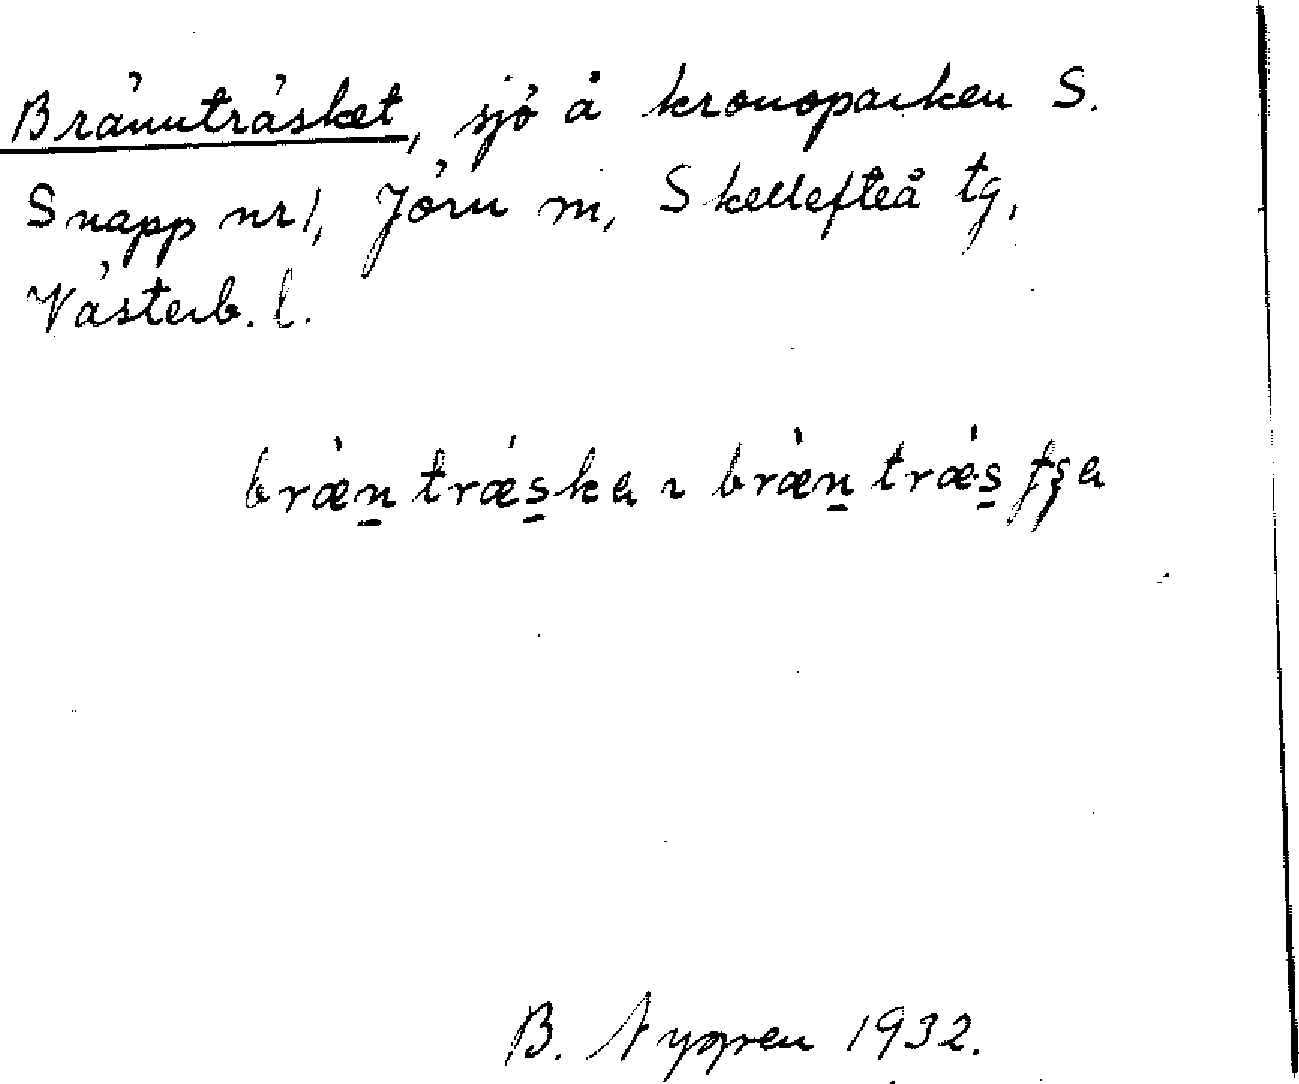 Brännträsket, sjö å kronoparken S.
Snapp nr 1, Jörn sn, Skellefteå tg,
Västerb. l.
bræ̀n træ̀ska ~ bræ̀n træ̀s
B. Nygren 1932.